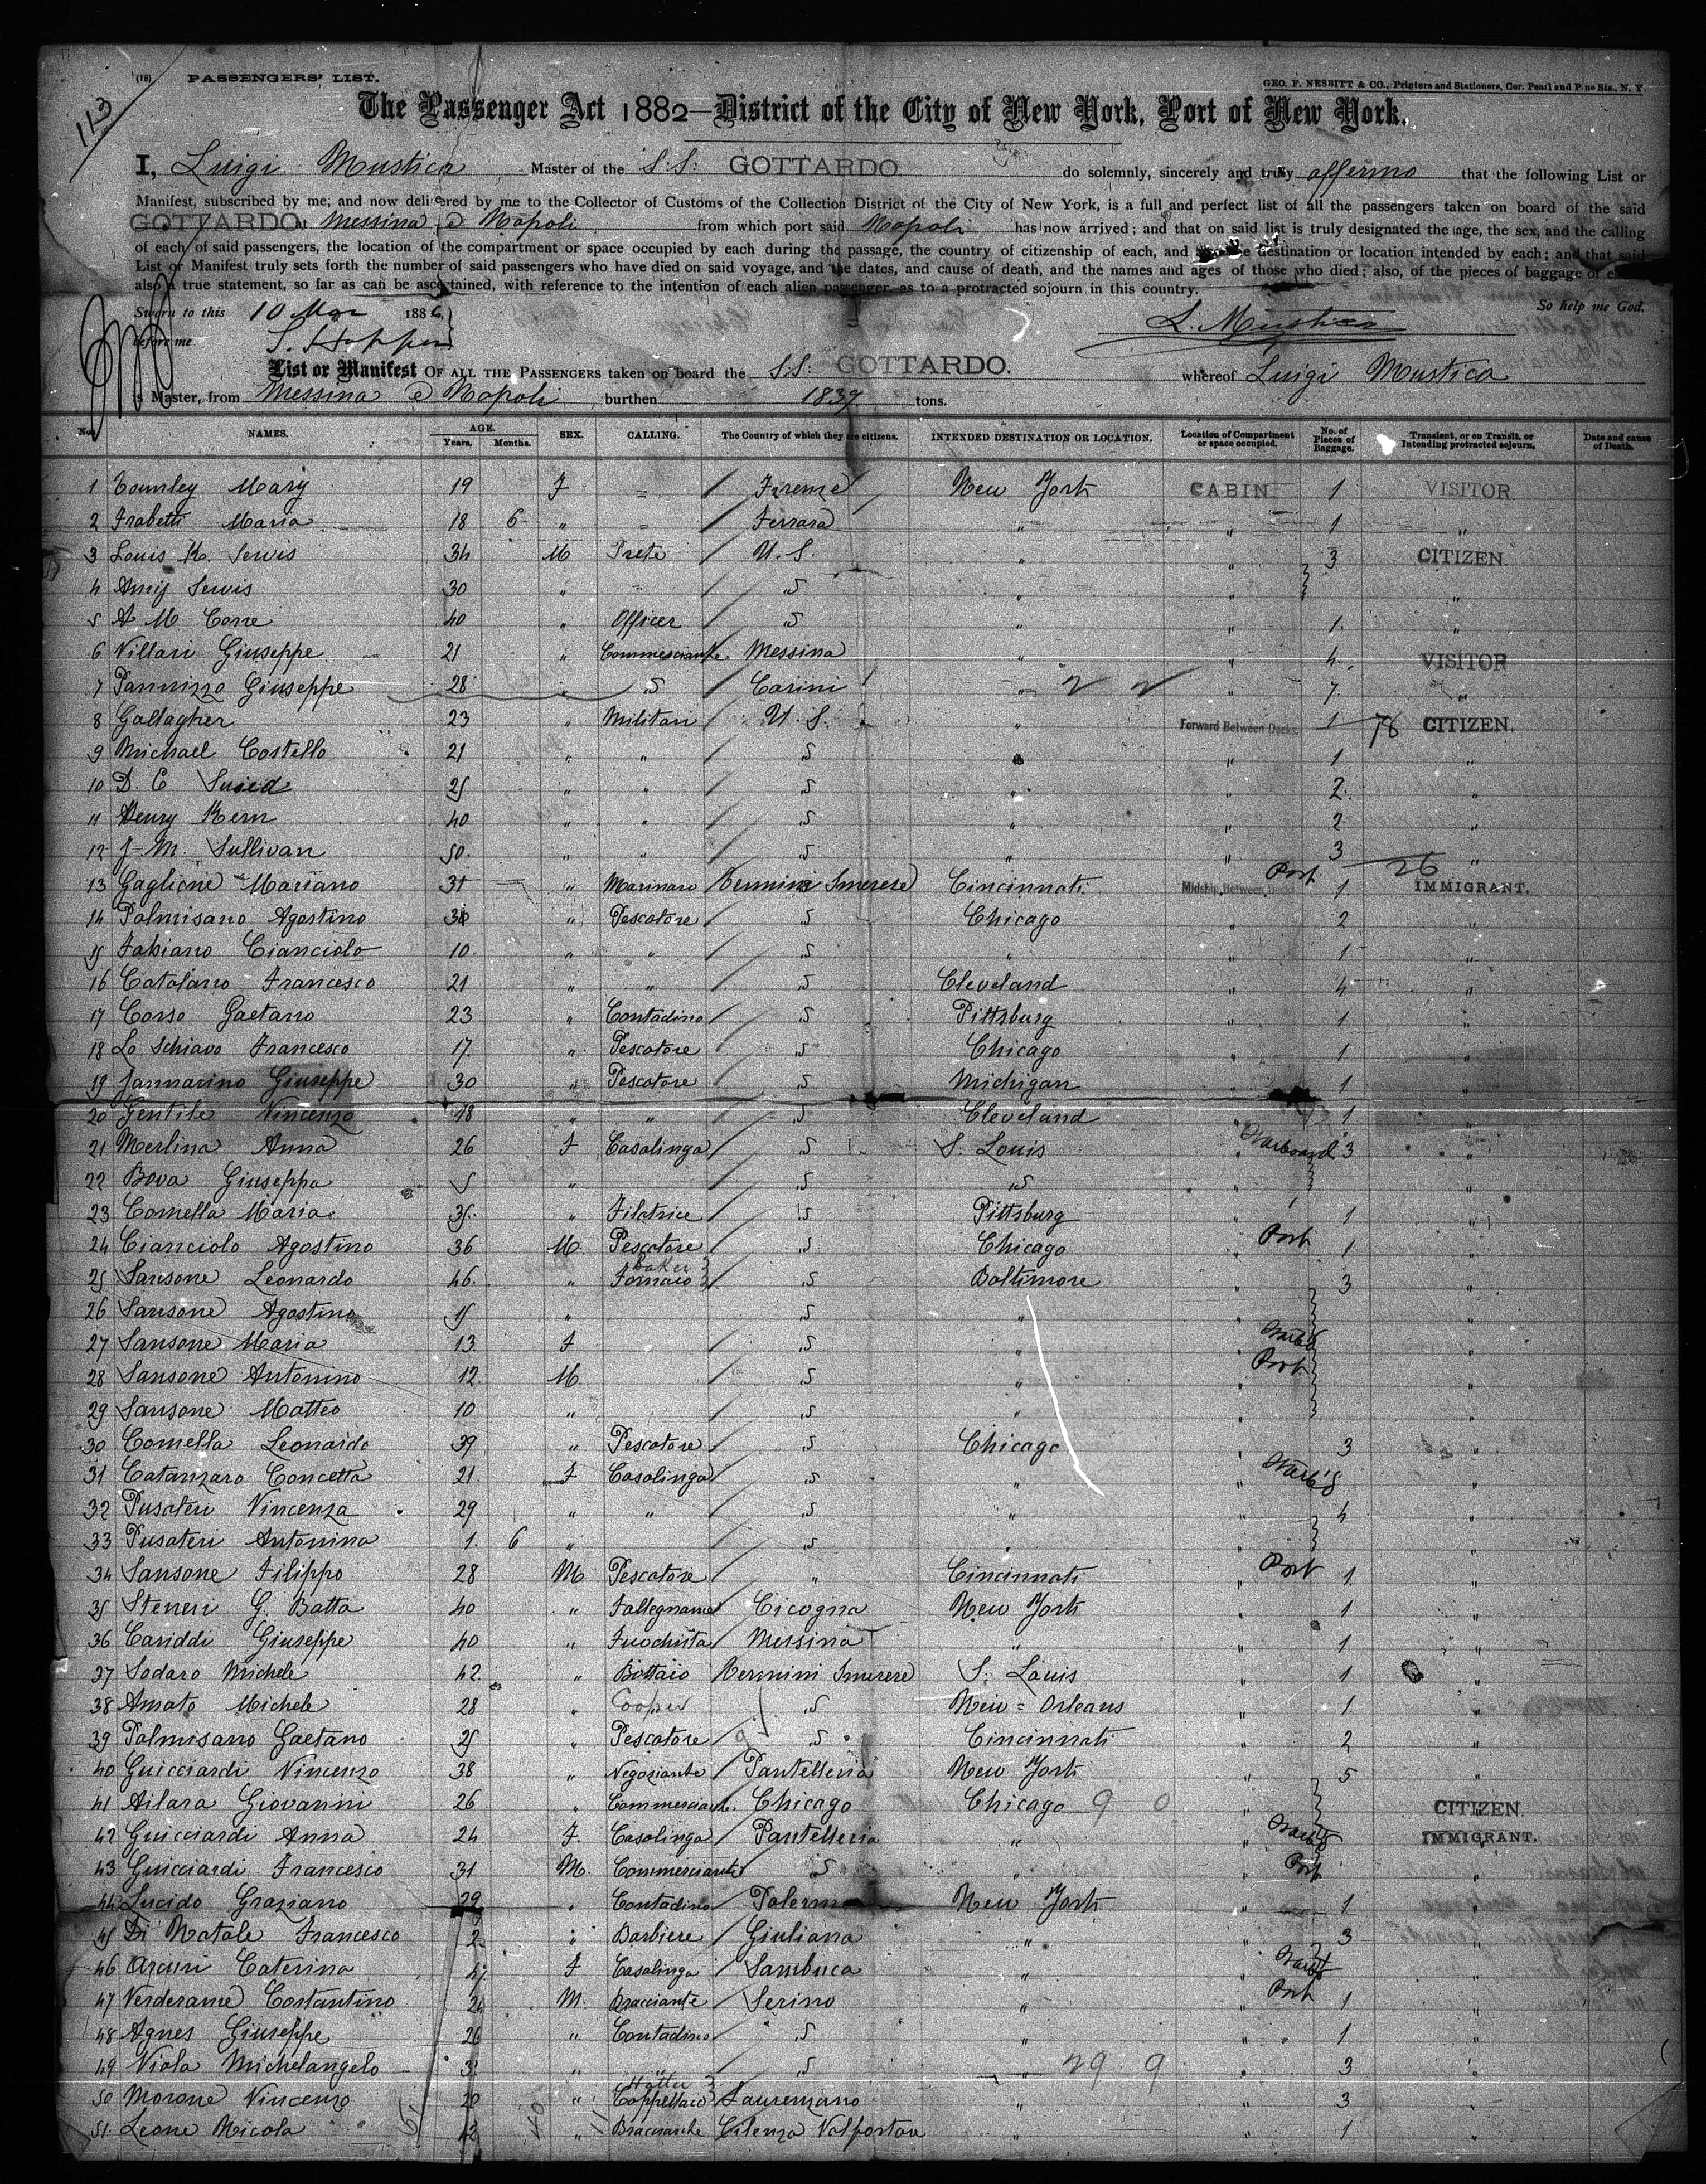 (18) PASSENGERS' LIST.
GEO. F. NESBITT & CO., Printers and Stationers, Cor. Pearl and Pine Sts., N. Y.
113
The Passenger Act 1882—District of the City of New York, Port of New York.
I, Luigi Mustica Master of the S.S: GOTTARDO. do solemnly, sincerely and truly affermo that the following List or
Manifest, subscribed by me, and now delivered by me to the Collector of Customs of the Collection District of the City of New York, is a full and perfect list of all the passengers taken on board of the said
GOTTARDO at Messina e Napoli from which port said Napoli has now arrived; and that on said list is truly designated the age, the sex, and the calling
of each of said passengers, the location of the compartment or space occupied by each during the passage, the country of citizenship of each, and destination or location intended by each; and that said
List or Manifest truly sets forth the number of said passengers who have died on said voyage, and the dates, and cause of death, and the names and ages of those who died; also, of the pieces of baggage of
also a true statement, so far as can be ascertained, with reference to the intention of each alien passenger, as to a protracted sojourn in this country.
Sworn to this 10 Mar 1886, So help me God.
before me S. Hopper L. Mustica
List or Manifest OF ALL THE PASSENGERS taken on board the S.S: GOTTARDO. whereof Luigi Mustica
is Master, from Messina e Napoli burthen 1839. tons.
No. NAMES. AGE. Years. Months. SEX. CALLING. The Country of which they are citizens. INTENDED DESTINATION OR LOCATION. Location of Compartment or space occupied. No. of Pieces of Baggage. Transient, or on Transit, or Intending protracted sojourn. Date and cause of Death.
1 Townley Mary 19 F = Firenze New York CABIN 1 VISITOR
2 Frabetti Maria 18 6 " = Ferrara " " 1 "
3 Louis K. Lewis 34 M Prete U. S. " " 3 CITIZEN.
4 Amij Lewis 30 " S " " "
5 A M Corre 40 " Officer S " " 1. "
6 Villari Giuseppe 21 " Commerciante Messina " " 4. VISITOR
7 Pannizzo Giuseppe 28 " S Carini " 2 2 " 7. "
8 Gallagher 23 " Militari U. S. " Forward Between Decks. 1 78 CITIZEN.
9 Michael Costello 21 " " S " " 1 "
10 D. C 25 " " S " " 2. "
11 Henry Kern 40 " " S " " 2 "
12 J. M. Sullivan 50. " " S " " 3 "
13 Gaglione Mariano 31 " Marinaro Termini Imerese Cincinnati Midship Between Decks Port 1 26 IMMIGRANT.
14 Palmisano Agostino 38 " Pescatore S Chicago " 2 "
15 Fabiano Cianciolo 10. " " S " " 1 "
16 Catalano Francesco 21 " " S Cleveland " 4 "
17 Corso Gaetano 23 " Contadino S Pittsburg " 1 "
18 Lo Schiavo Francesco 17. " Pescatore S Chicago " 1 "
19 Jannarino Giuseppe 30 " Pescatore S Michigan " 1 "
20 Gentile Vincenzo 18 " " S Cleveland " 1 "
21 Merlina Anna 26 F Casalinga S S. Louis " Starboard 3 "
22 Bova Giuseppa 5 " S S " "
23 Comella Maria 35. " Filatrice S Pittsburg " 1 "
24 Cianciolo Agostino 36 M. Pescatore S Chicago " Port 1 "
baker
25 Sansone Leonardo 46. " Fornaio S Baltimore " 3 "
26 Sansone Agostino 15 " S " " "
27 Sansone Maria 13. F S " Starb'd "
28 Sansone Antonino 12. M. S " Port "
29 Sansone Matteo 10 " S " " "
30 Comella Leonardo 39 " Pescatore S Chicago " 3 "
31 Catanzaro Concetta 21. F Casalinga S " Starb'd "
32 Pusateri Vincenza 29 " " S " " 4 "
33 Pusateri Antonina 1. 6 " S " " "
34 Sansone Filippo 28 M Pescatore " Cincinnati " Port 1. "
35 Steneri G. Batta 40 " Falegname Cicogna New York " 1 "
36 Cariddi Giuseppe 40 " Fuochista Messina " " 1 "
37 Lodaro Michele 42. " Bottaio Termini Imerese S. Louis " 1 "
38 Amato Michele 28 " Cooper S New = Orleans " 1. "
39 Palmisano Gaetano 25 " Pescatore S Cincinnati " 2 "
40 Guicciardi Vincenzo 38 " Negoziante Pantelleria New York " 5 "
41 Ailara Giovanni 26 " Commerciante. Chicago Chicago 9 0 " CITIZEN.
42 Guicciardi Anna 24 F. Casalinga Pantelleria " " Starb'd IMMIGRANT.
43 Guicciardi Francesco 31 M. Commerciante S Port "
44 Lucido Graziano 29 " Contadino Palermo New York " 1 "
45 Di Natale Francesco 2 " Barbiere Giuliana " " 3 "
46 Arcuri Caterina 47 F Casalinga Sambuca " " Starb'd "
47 Verderame Costantino 24 M. Bracciante Serino " " Port 1 "
48 Agnes Giuseppe 26 " Contadino S " " 1 "
49 Viola Michelangelo 3 " " S " 29 9 " 3 "
Hatter
50 Morone Vincenzo 28 " Cappellaio Laurenzano " " 3 "
51. Leone Nicola 42 " Bracciante Celenza Valfortore " " 1 "